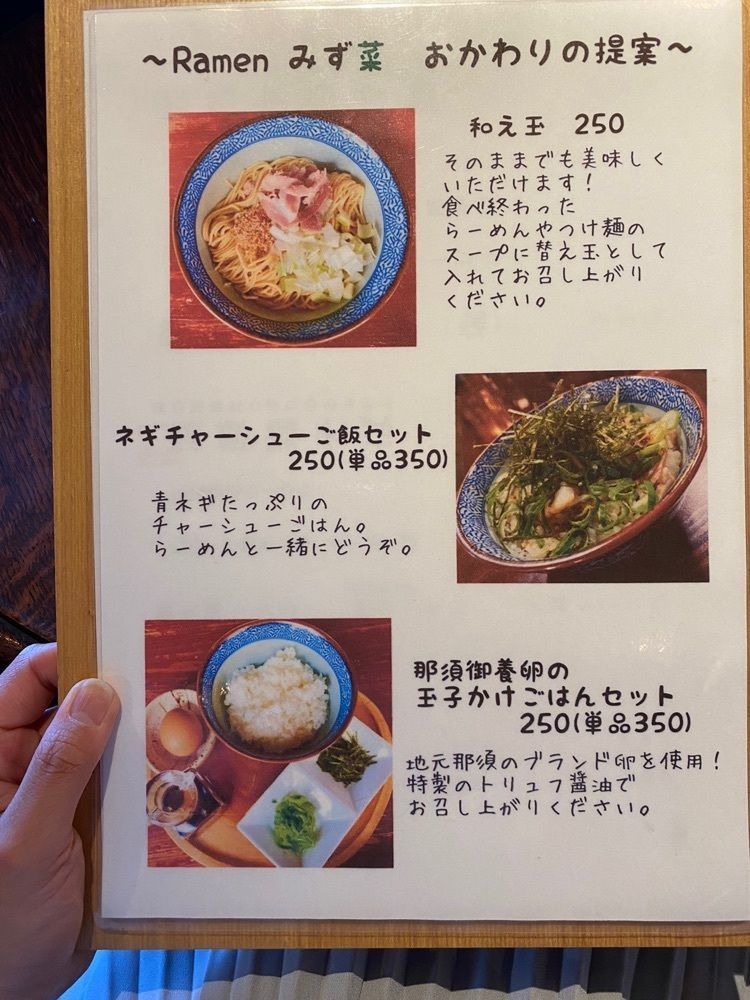 ～Ramen みず菜 おかわりの提案～
和え玉 250
そのままでも美味しく
いただけます！
食べ終わった
らーめんやつけ麺の
スープに替え玉として
入れてお召し上がり
ください。
ネギチャーシューご飯セット
250(単品350)
青ネギたっぷりの
チャーシューごはん。
らーめんと一緒にどうぞ。
那須御養卵の
玉子かけごはんセット
250(単品350)
地元那須のブランド卵を使用！
特製のトリュフ醬油で
お召し上がりください。